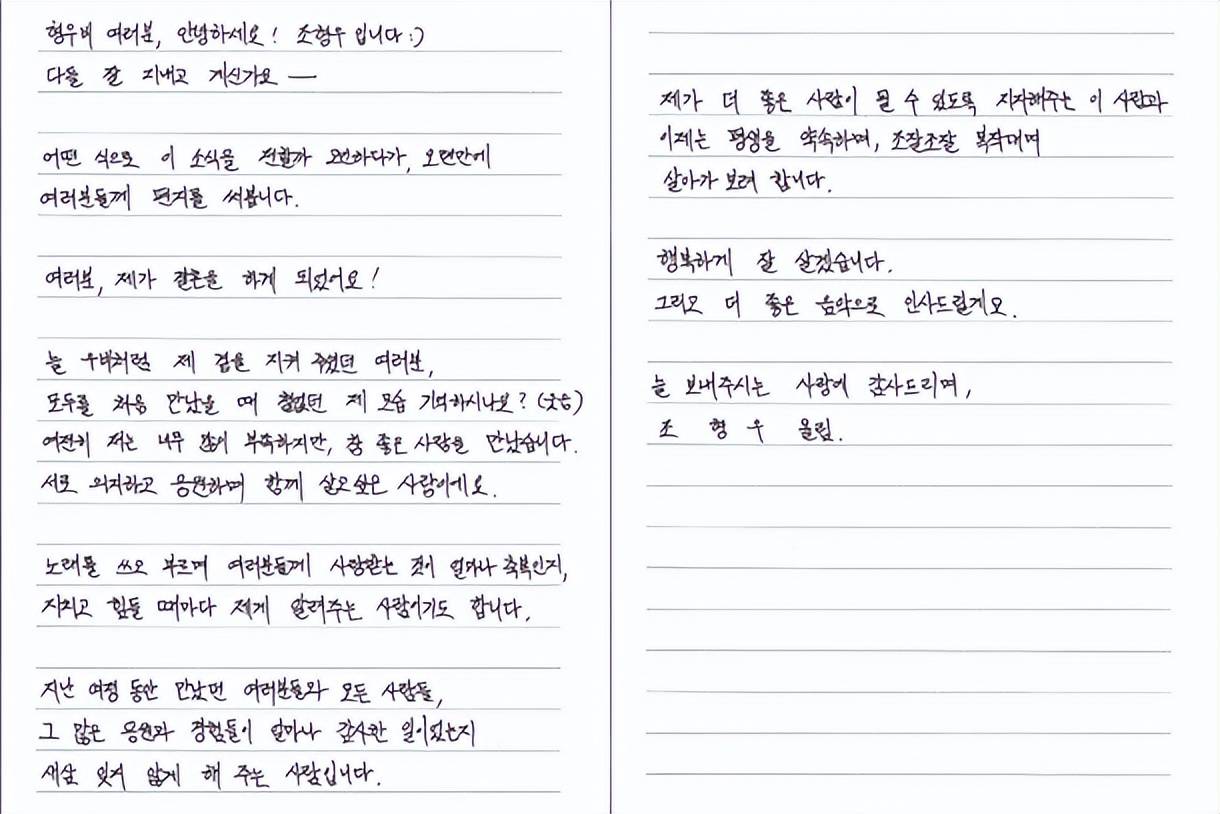 형우비 여러분, 안녕하세요! 조형우 입니다:)
다들 잘 지내고 계신가요 —
어떤 식으로 이 소식을 전할까 고민하다가, 오랜만에
여러분들께 편지를 써봅니다.
여러분, 제가 결혼을 하게 되었어요!
늘 우비처럼 제 곁을 지켜 주셨던 여러분,
모두를 처음 만났을 때 제 모습 기억하시나요? (웃음)
여전히 저는 너무 많이 부족하지만, 참 좋은 사람을 만났습니다.
서로 의지하고 응원하며 함께 살고싶은 사람이에요.
노래를 쓰고 부르며 여러분들께 사랑받는 것이 얼마나 축복인지,
지치고 힘들 때마다 제게 알려주는 사람이기도 합니다.
지난 여정 동안 만났던 여러분들과 모든 사람들,
그 많은 응원과 경험들이 얼마나 감사한 일이었는지
새삼 잊지 않게 해 주는 사람입니다.
제가 더 좋은 사람이 될 수 있도록 지지해주는 이 사람과
이제는 평생을 약속하며, 조잘조잘 복작대며
살아가 보려 합니다.
행복하게 잘 살겠습니다.
그리고 더 좋은 음악으로 인사드릴게요.
늘 보내주시는 사랑에 감사드리며,
조 형 우 올림.